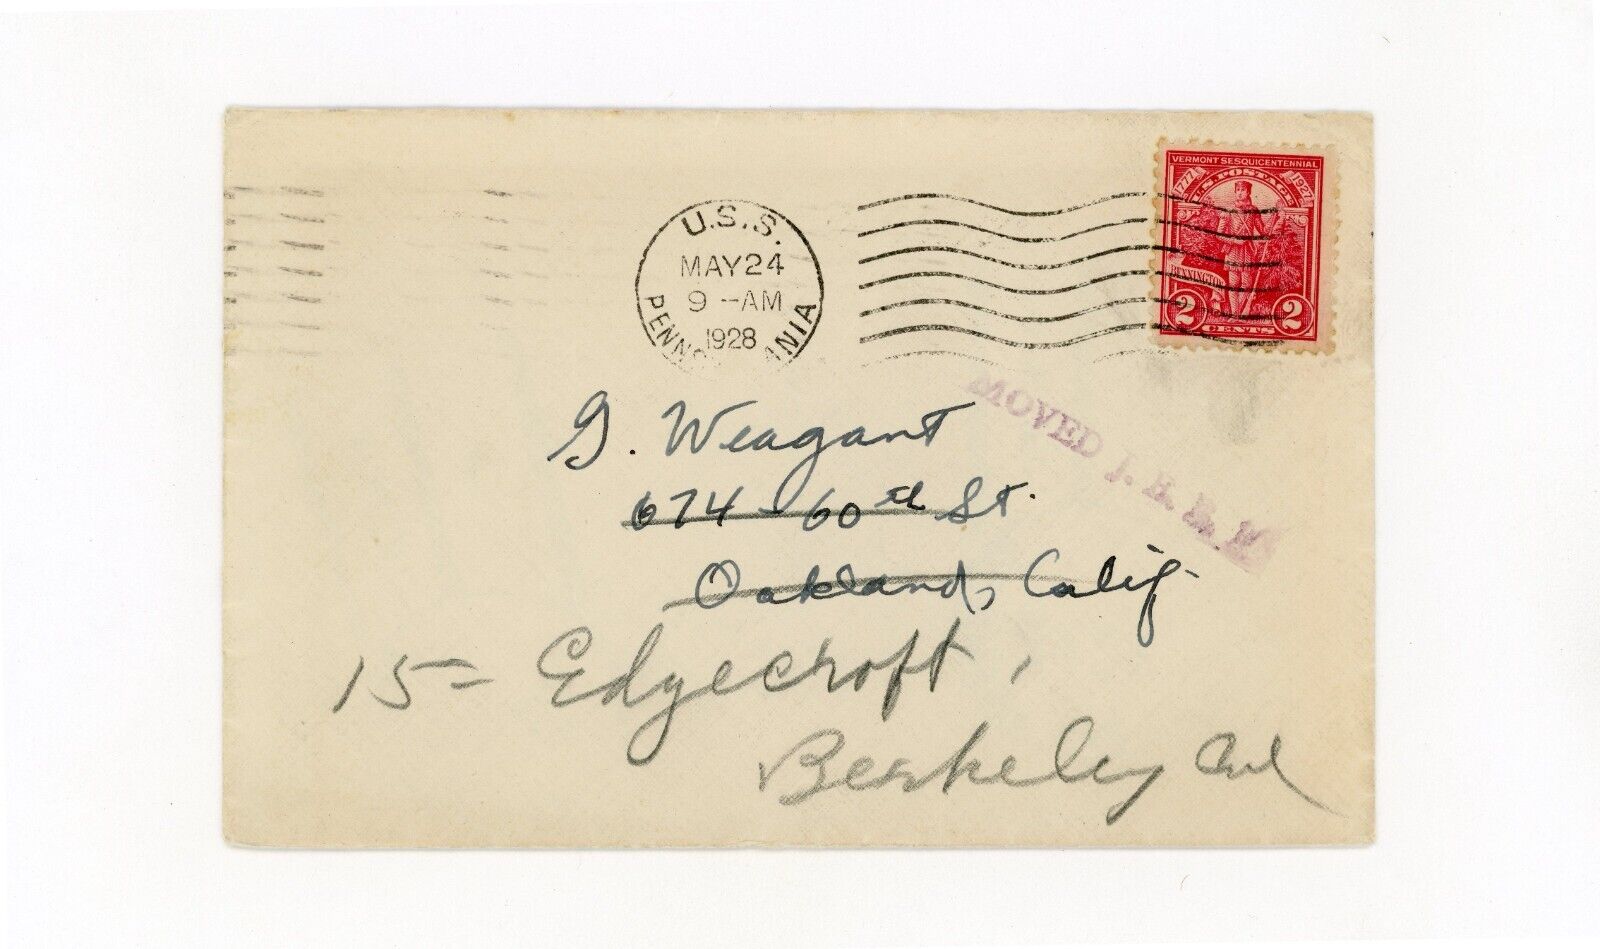 U.S.S.
MAY 24
9 -AM
1928
PENNSYLVANIA
VERMONT SESQUICENTENNIAL
1777 1927
U.S. POSTAGE
BENNINGTON
2 CENTS 2
MOVED
G. Weagant
674 - 60th St.
Oakland, Calif
15 = Edgecroft,
Berkeley Cal